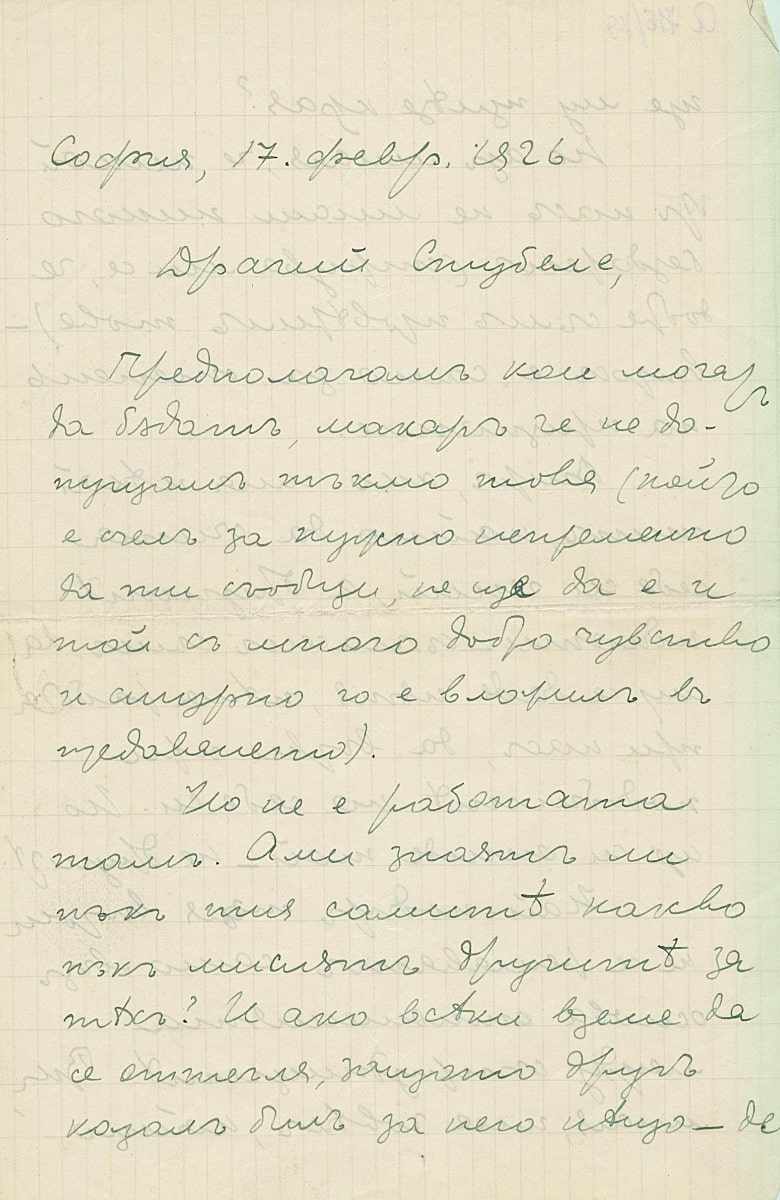 София, 17. февр. 1926
Драгий Стубеле,
Предполагамъ кои могатъ
да бѫдатъ, макаръ че не до-
пущамъ тъкмо това (който
е счелъ за нужно непременно
да ти съобщи, не ще да е и
той съ много добро чувство
и сигурно го е вложилъ въ
предаването).
Но не е работата
тамъ. Ами знаятъ ли
пъкъ тия самитѣ какво
пъкъ мислятъ другитѣ за
тѣхъ? И ако всѣки вземе да
се оттегля, защото другъ
казалъ билъ за него нѣщо — де